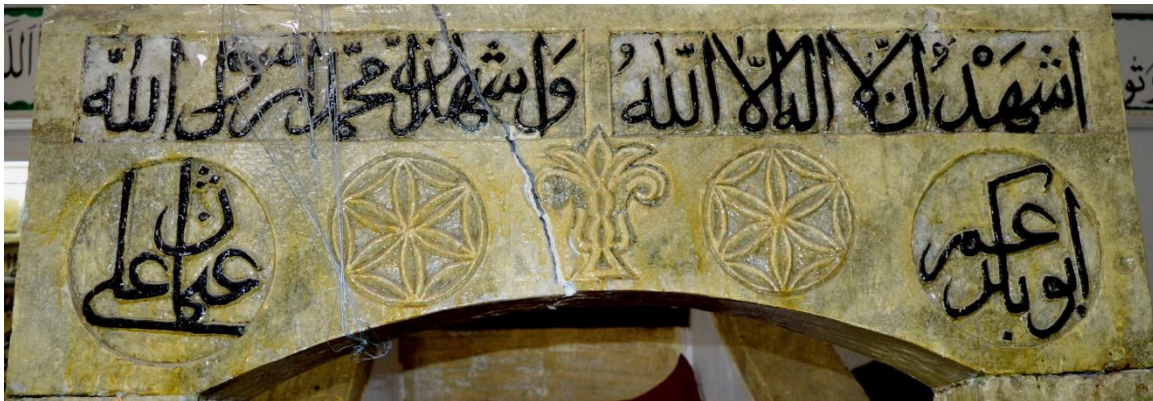 اشهد ان لا اله الا الله
واشهد ان محمد رسول الله
ابو بكر عمر
عثمان علي